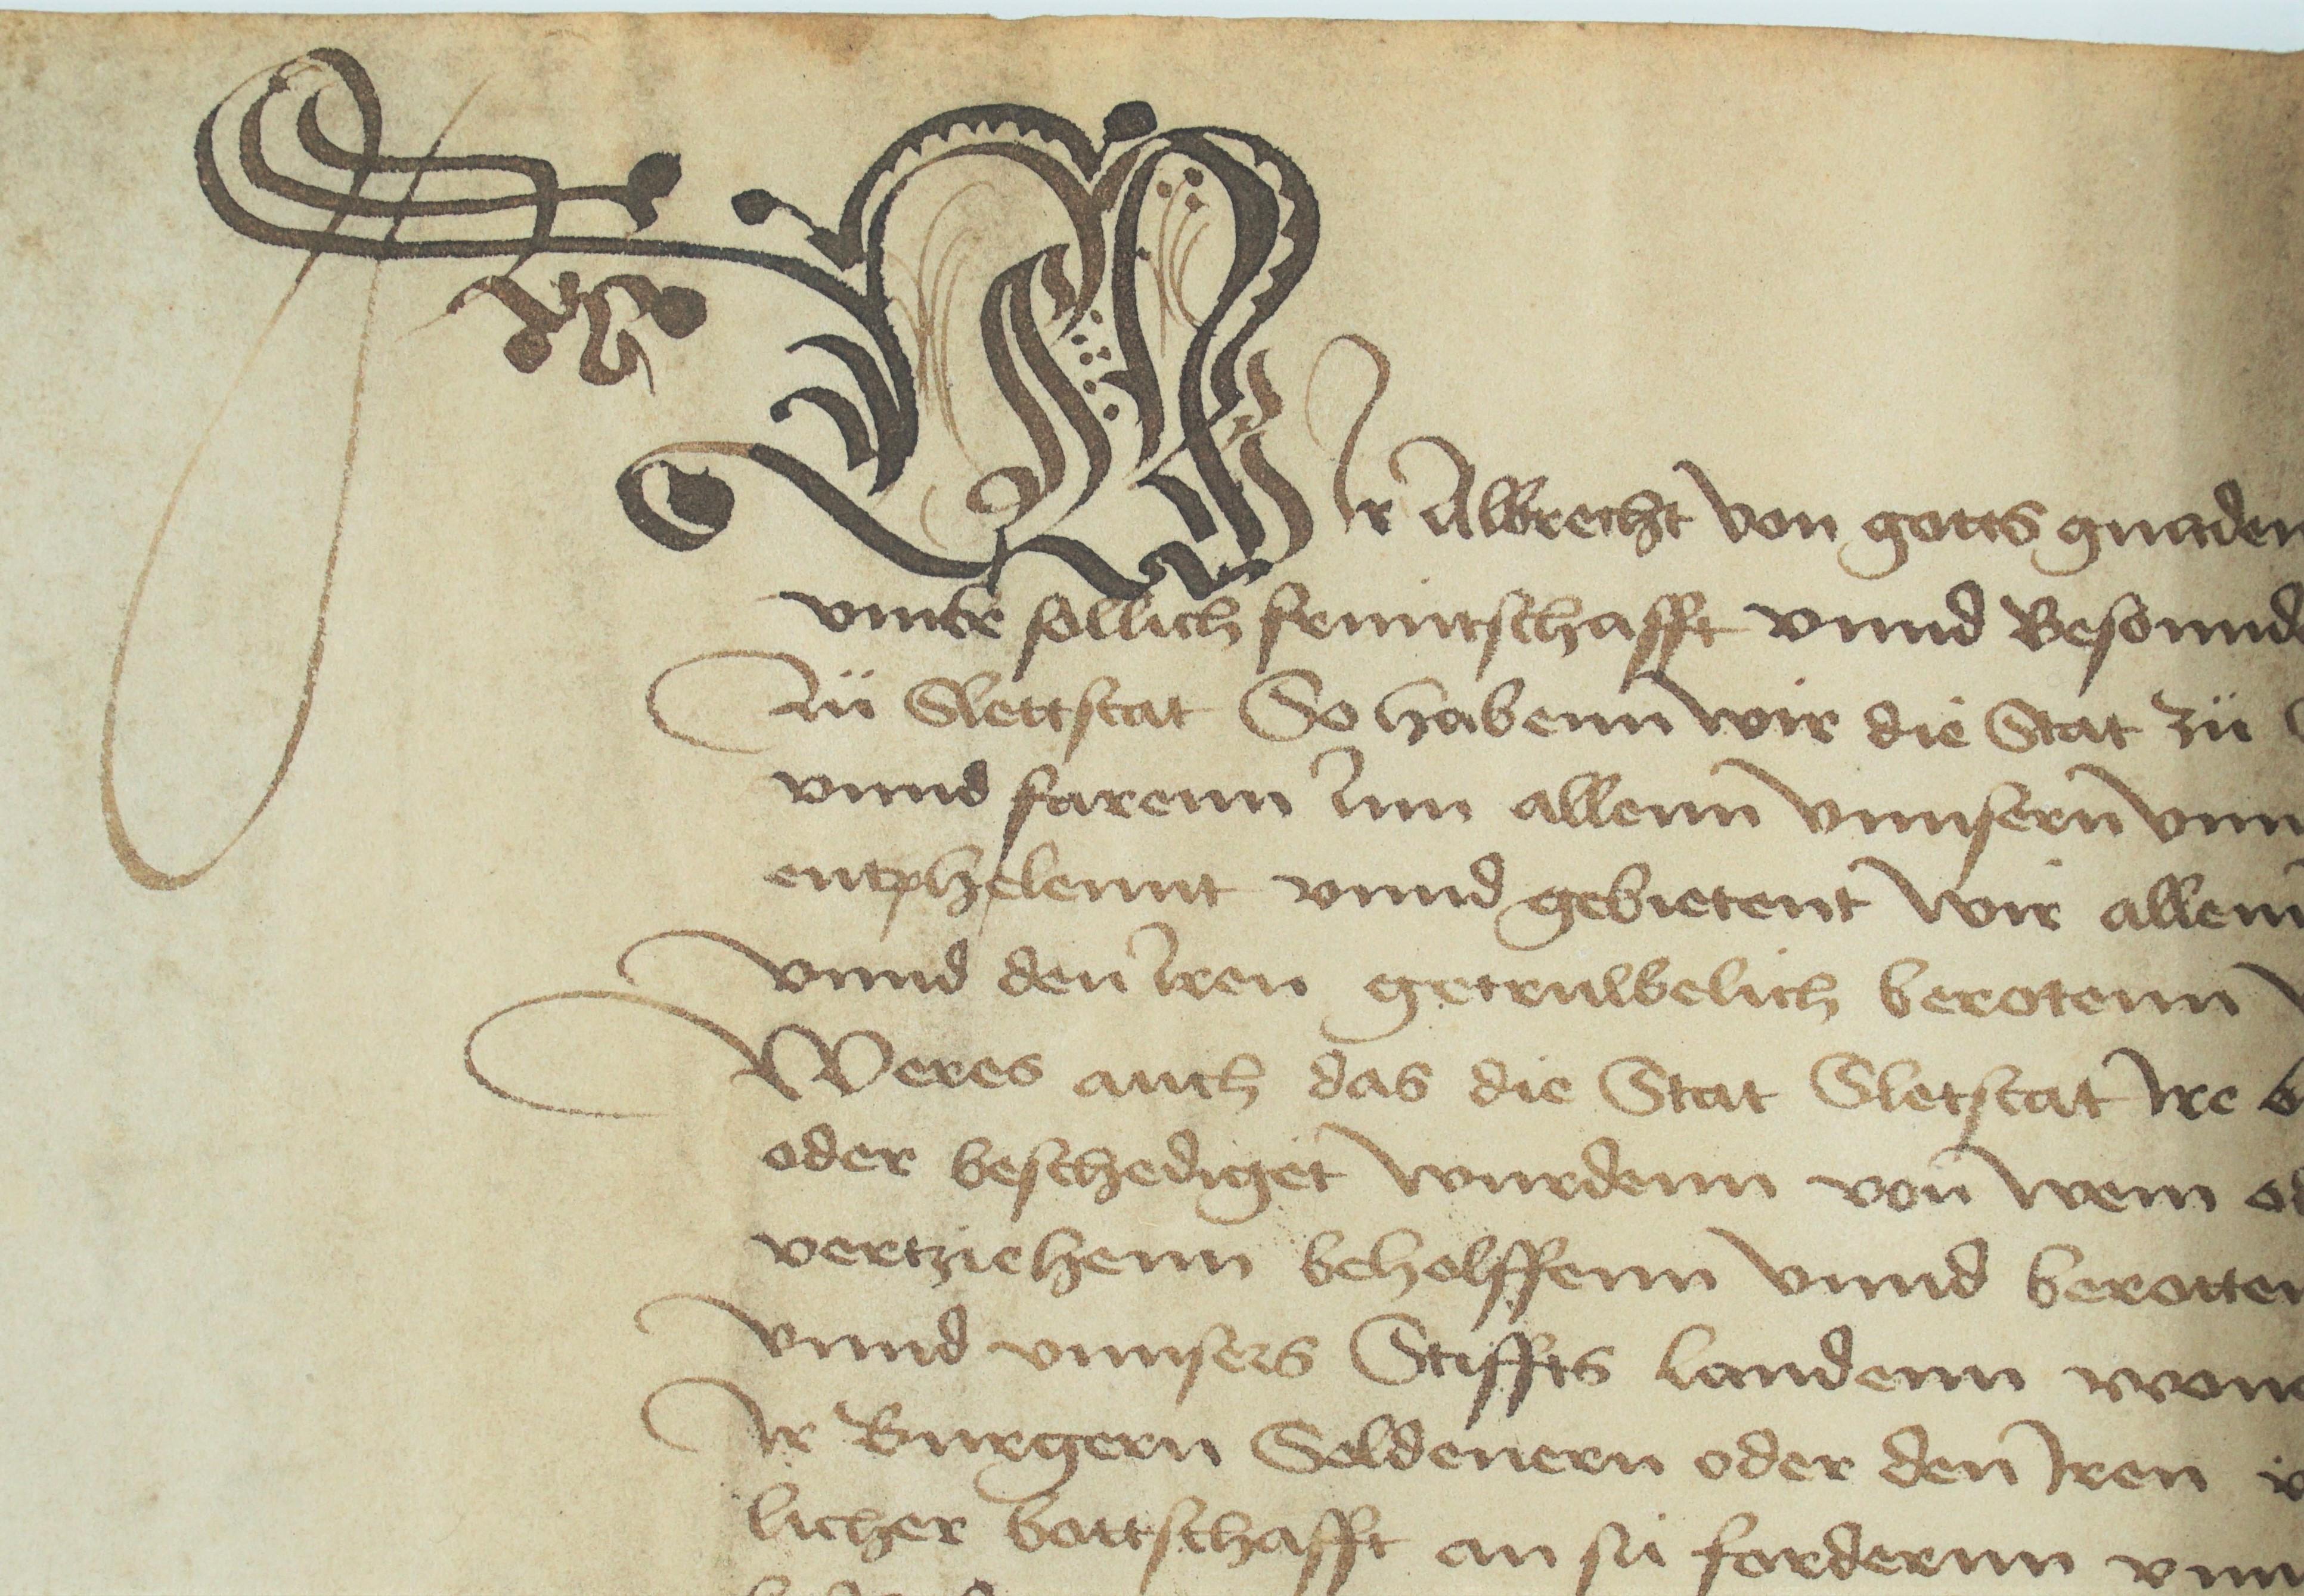 WIr Albrecht von gotts gnaden
vmbe sollich fruntschafft vnnd Besonnde
Zü Slettstat So habenn wir die Stat zü
vnnd farenn Inn allenn vnnsern vnn
entphelennt vnnd gebietent wir allenn
vnnd den Iren getrulbelich berotenn
Weres auch das die Stat Sletstat Ire
oder beschediget wurdenn von wem od
vertziehenn beholffenn vnnd berotten
vnnd vnnsers Stiffts Landenn wone
Ir Burgern Soldenern oder den Iren
licher bottschafft an sü fordernn vnn